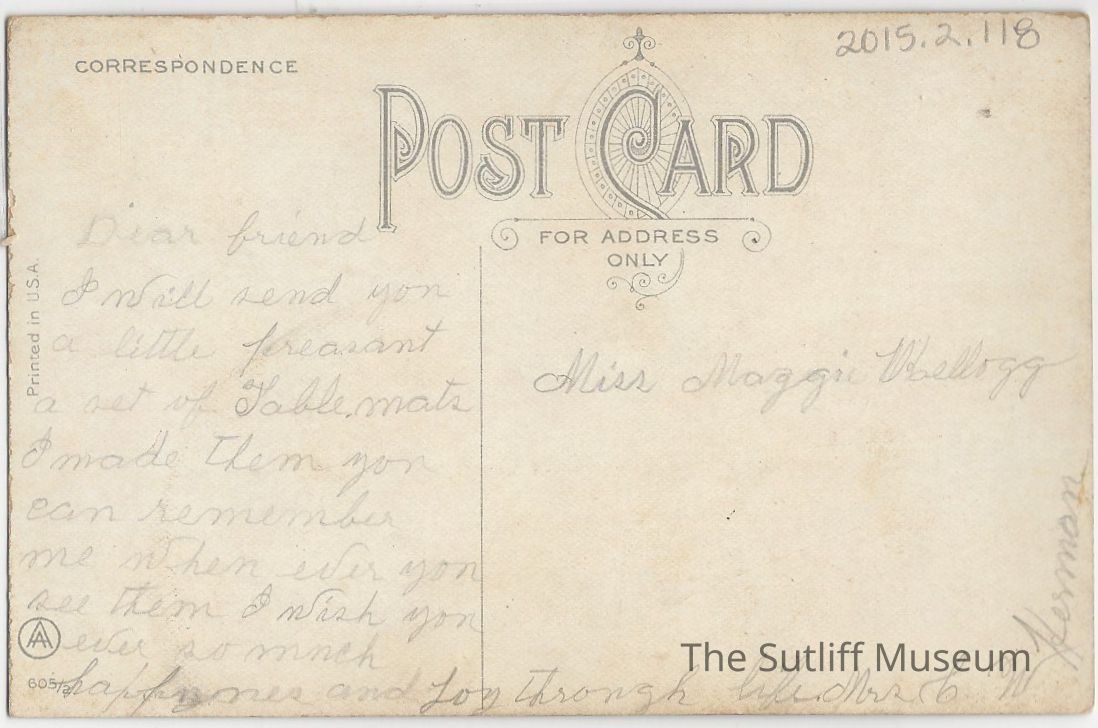 2015.2.118
CORRESPONDENCE
POST CARD
FOR ADDRESS
ONLY
Printed in U.S.A.
Dear friend
I will send you
a little preasant
a set of Table mats
I made them you
can remember
me when ever you
see them I wish you
ever so much
happynes and Joy through life Mrs C
Herman
Miss Maggie Kellogg
AA
The Sutliff Museum